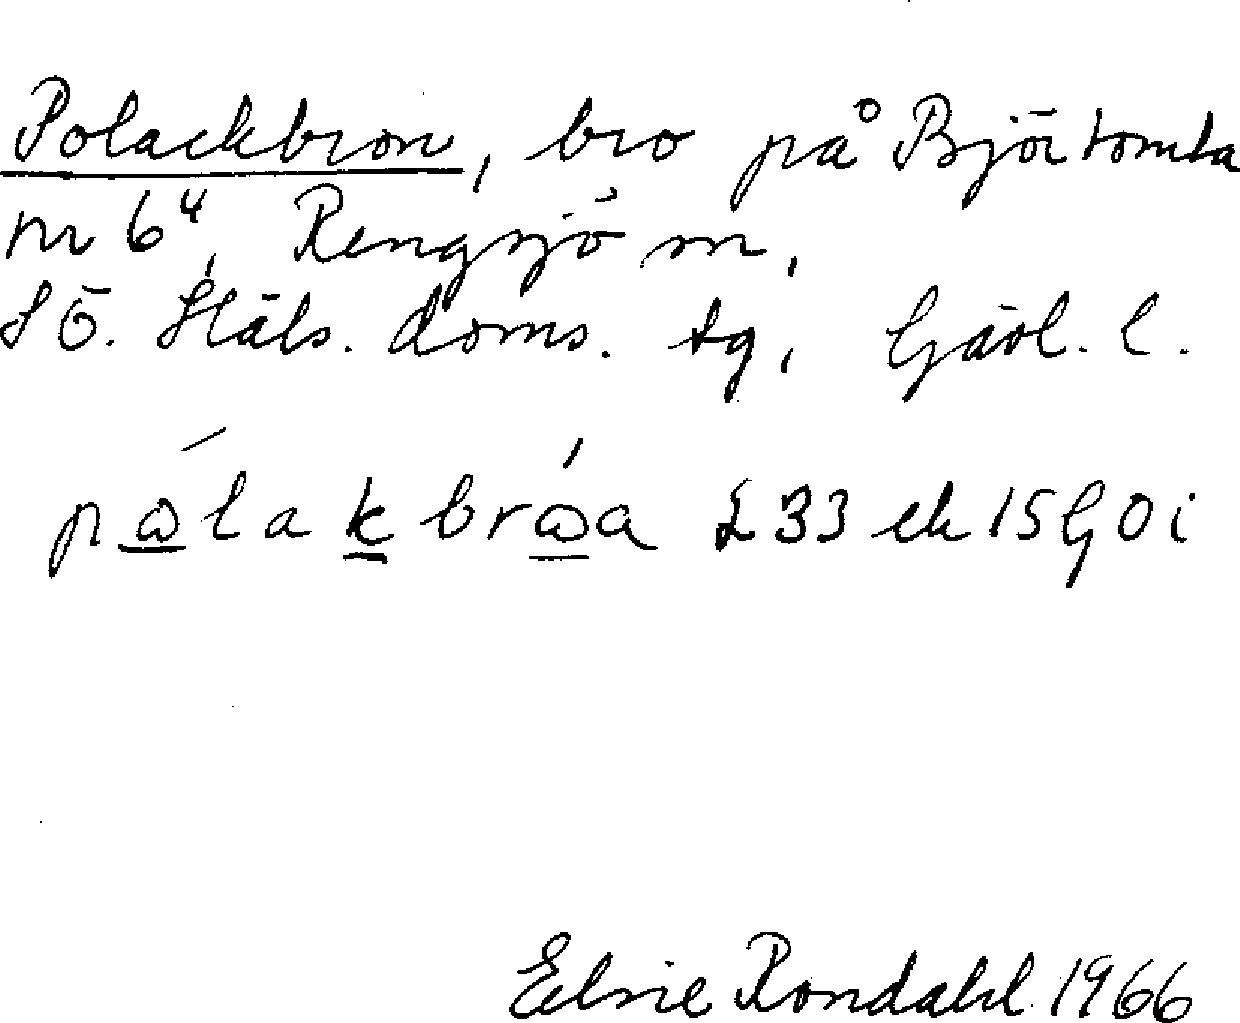 Polackbron, bro på Björtomta
nr 6⁴, Rengsjö sn,
SÖ. Häls. doms. tg, Gävl. l.
pålakbròa £ 33 ek 15 G 0 i
Elsie Rondahl 1966